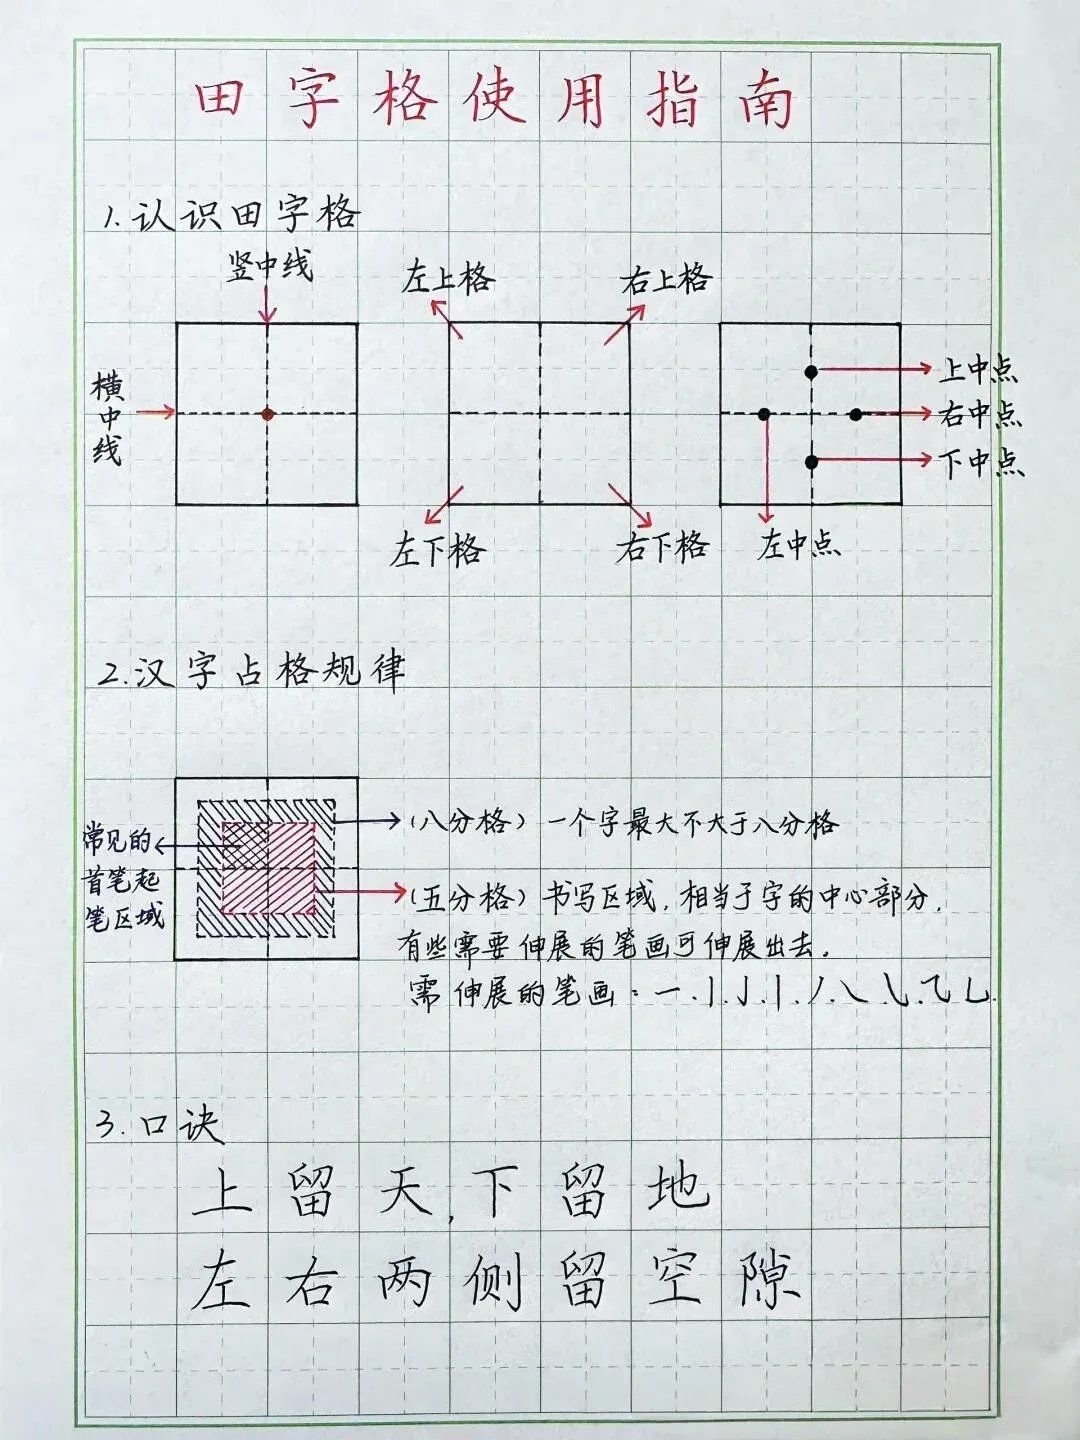 田字格使用指南
1.认识田字格
竖中线
左上格
右上格
横中线
上中点
右中点
下中点
左下格
右下格
左中点
2.汉字占格规律
常见的
首笔起
笔区域
(八分格) 一个字最大不大于八分格
(五分格) 书写区域,相当于字的中心部分,
有些需要伸展的笔画可伸展出去。
需伸展的笔画:一.丨.亅.丨.丿.㇏.㇂.⺄.乚.
3.口诀
上留天,下留地
左右两侧留空隙